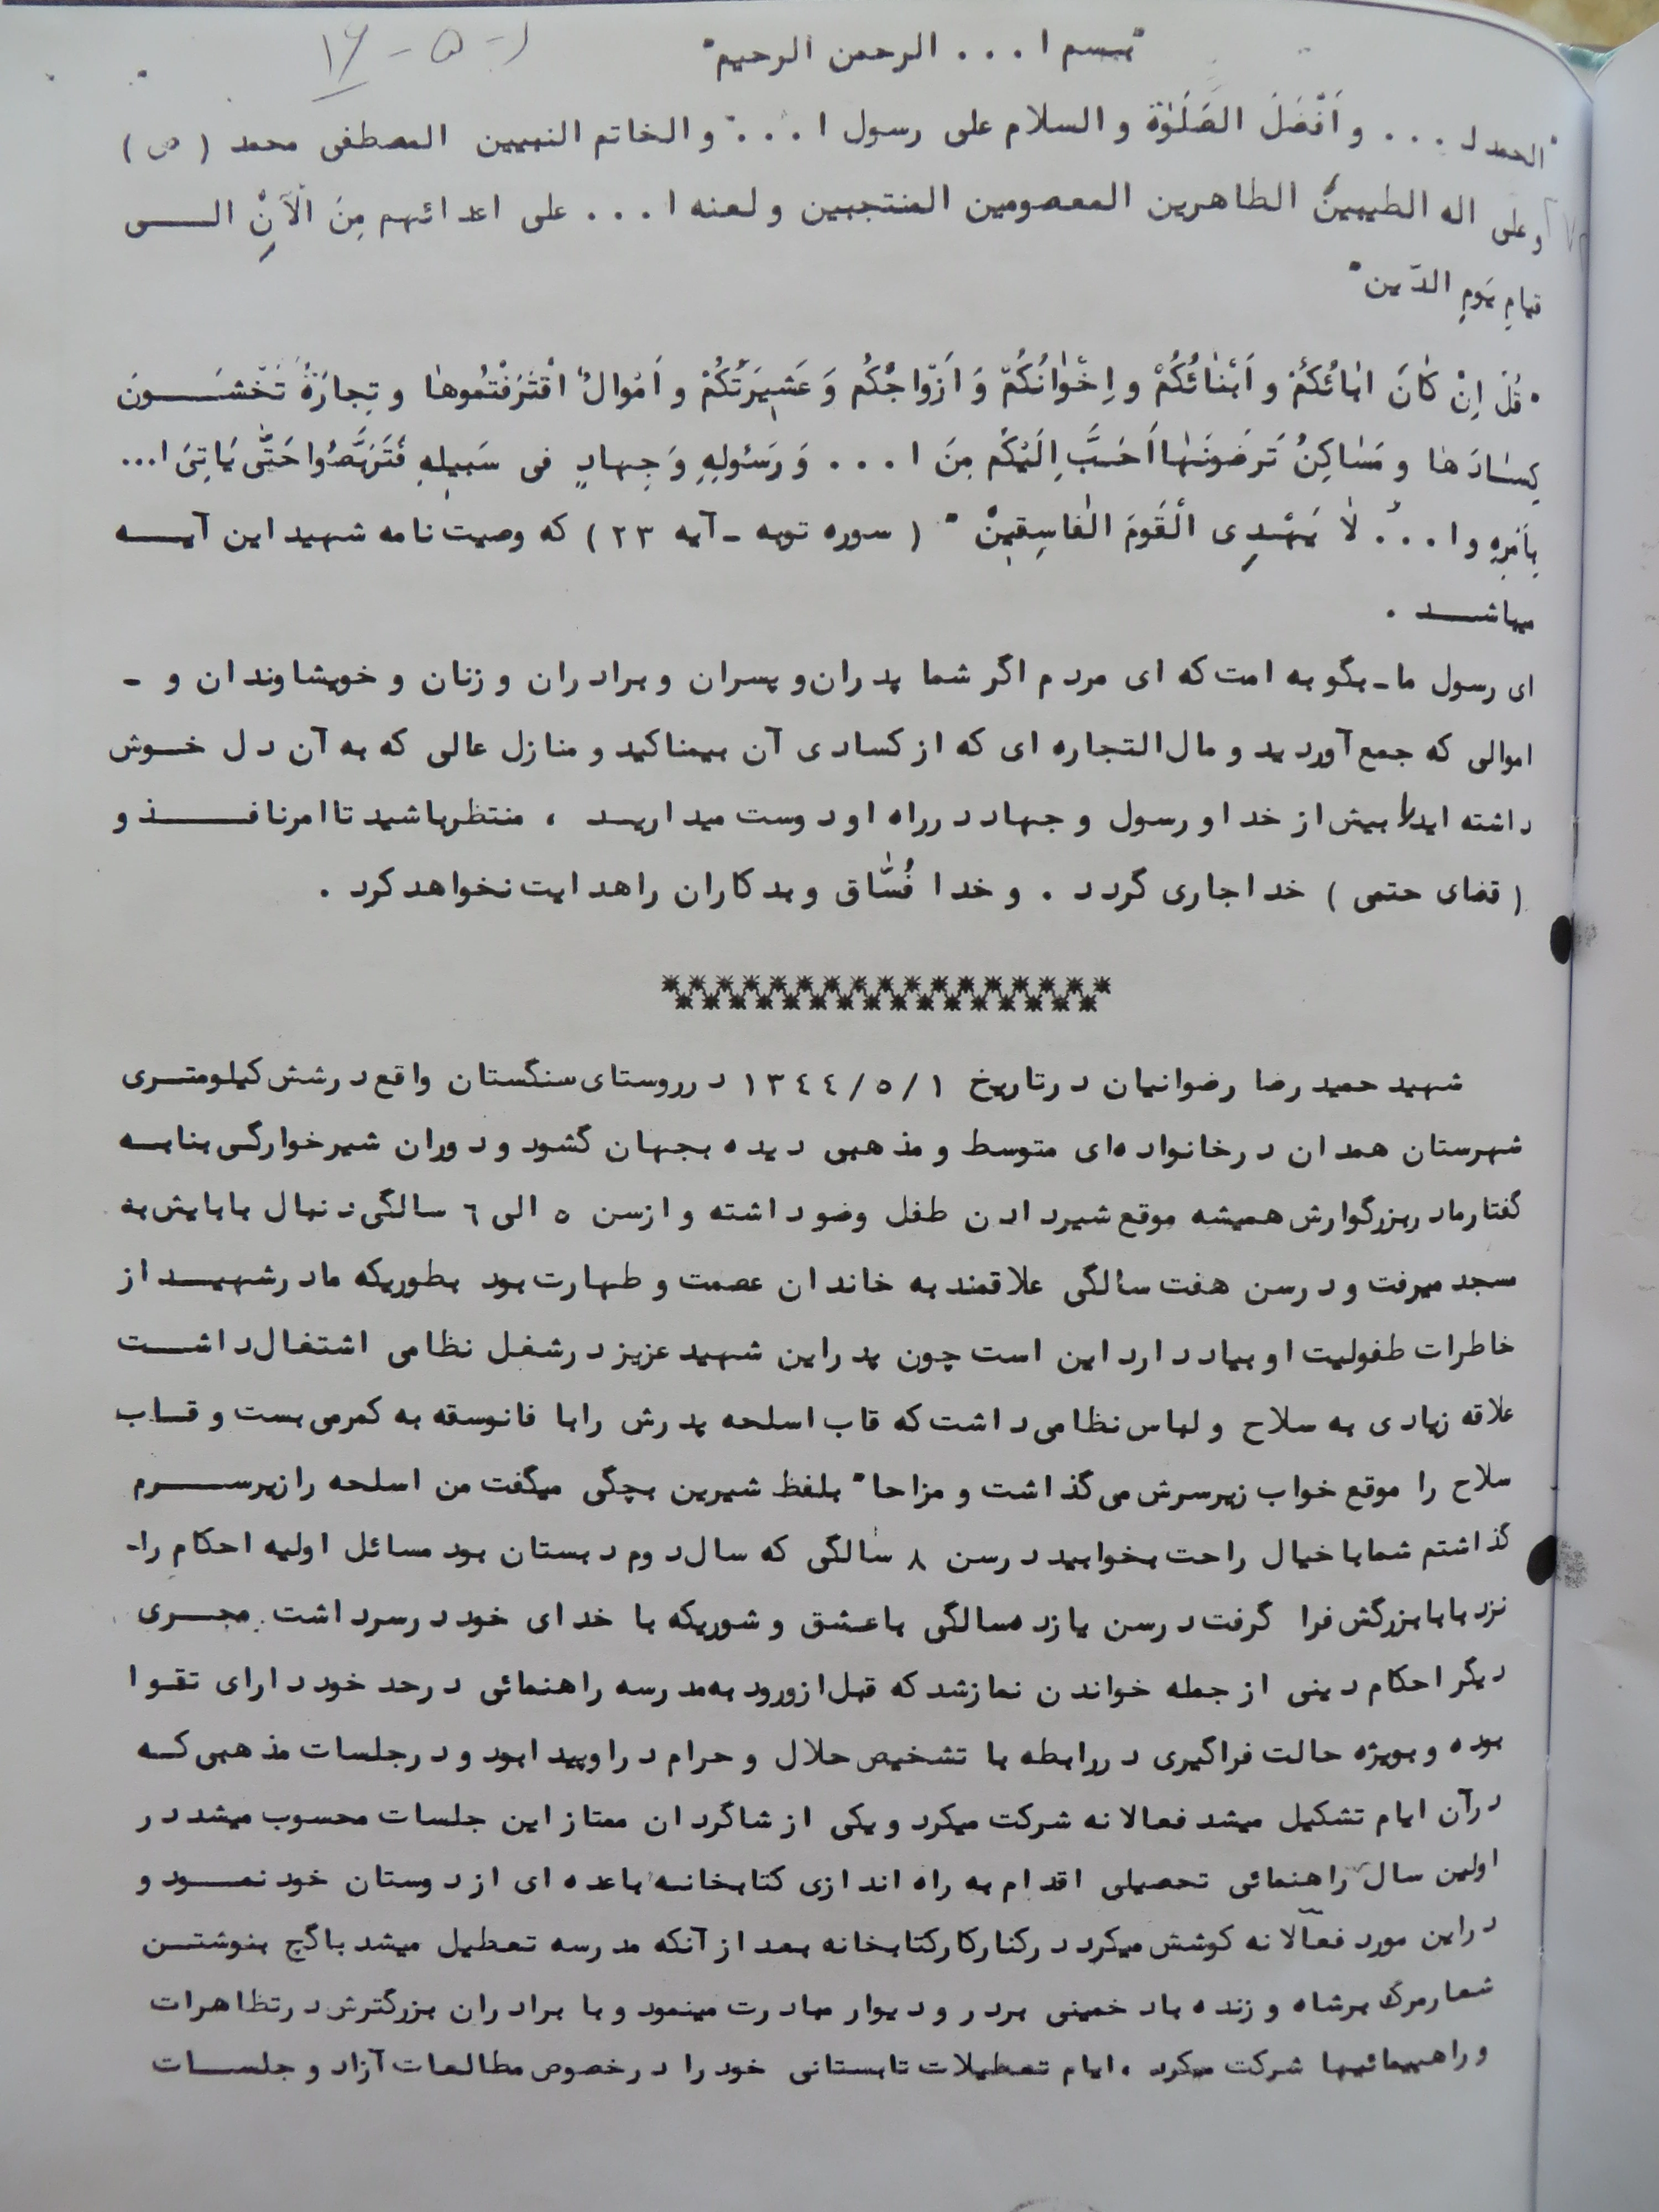 ۱۶-۵-۱
"بسم ا... الرحمن الرحیم"
"الحمد لـ... و اَفْضَلَ الصَّلَوٰة و السلام علی رسول ا..." و الخاتم النبیین المصطفی محمد (ص)
و علی اله الطیبینَ الطاهرین المعصومین المنتجبین و لعنه ا... علی اعدائهم مِنَ الْآنِ الــی
قیامِ یَومِ الدّین"
"قُلْ اِنْ کٰانَ ابٰائُکُمْ و اَبْنٰائُکُمْ و اِخْوٰانُکُمْ وَ اَزْواجُکُم وَ عَشیرَتُکُمْ و اَمْوالُ اقْتَرَفْتُموهٰا و تِجارَةُ تَخْشَــونَ
کِسٰادَهٰا و مَسٰاکِنُ تَرضَونَهٰا اَحَبَّ اِلَیْکُم مِنَ ا... وَ رَسُولِهِ وَ جِهادٍ فی سَبیلِهِ فَتَرَبَّصُوا حَتّٰی یَاتِیَ ا...
بِاَمْرِهِ و ا...ُ لٰا یَهْدِی الْقَومَ الفٰاسِقینْ" (سوره توبه - آیه ۲۳) که وصیت نامه شهید این آیــه
میباشــد.
ای رسول ما - بگو به امت که ای مردم اگر شما پدران و پسران و برادران و زنان و خویشاوندان و -
اموالی که جمع آوردید و مال التجاره ای که از کسادی آن بیمناکید و منازل عالی که به آن دل خــوش
داشته اید را بیش از خدا و رسول و جهاد در راه او دوست میداریــد ، منتظر باشید تا امر نافــذ و
(قضای حتمی) خدا جاری گردد. و خدا فُسّٰاق و بدکاران را هدایت نخواهد کرد.
شهید حمید رضا رضوانیان در تاریخ ۱۳۴۴/۵/۱ در روستای سنگستان واقع در شش کیلومتــری
شهرستان همدان در خانواده‌ای متوسط و مذهبی دیده بجهان گشود و دوران شیرخوارگــی بنابــه
گفتار مادر بزرگوارش همیشه موقع شیر دادن طفل وضو داشته و از سن ۵ الی ۶ سالگی دنبال بابایش به
مسجد میرفت و در سن هفت سالگی علاقمند به خاندان عصمت و طهارت بود بطوریکه مادر شهیــد از
خاطرات طفولیت او بیاد دارد این است چون پدر این شهید عزیز در شغل نظامی اشتغال داشــت
علاقه زیادی به سلاح و لباس نظامی داشت که قاب اسلحه پدرش را با فانوسقه به کمر می بست و قــاب
سلاح را موقع خواب زیر سرش می گذاشت و مزاحا" بلفظ شیرین بچگی میگفت من اسلحه را زیر ســرم
گذاشتم شما با خیال راحت بخوابید در سن ۸ سالگی که سال دوم دبستان بود مسائل اولیه احکام را-
نزد بابا بزرگش فرا گرفت در سن یازده سالگی با عشق و شوریکه با خدای خود در سر داشت. مجــری
دیگر احکام دینی از جمله خواندن نماز شد که قبل از ورود به مدرسه راهنمائی در حد خود دارای تقــوا
بوده و بویژه حالت فراگیری در رابطه با تشخیص حلال و حرام در او پیدا بود و در جلسات مذهبی کــه
در آن ایام تشکیل میشد فعالانه شرکت میکرد و یکی از شاگردان ممتاز این جلسات محسوب میشد در
اولین سال راهنمائی تحصیلی اقدام به راه اندازی کتابخانــه با عده ای از دوستان خود نمــود و
در این مورد فعالانه کوشش میکرد در کنار کار کتابخانه بعد از آنکه مدرسه تعطیل میشد با گچ بنوشتــن
شعار مرگ بر شاه و زنده باد خمینی بر در و دیوار مبادرت مینمود و با برادران بزرگترش در تظاهرات
و راهپیمائیها شرکت میکرد. ایام تعطیلات تابستانی خود را در خصوص مطالعات آزاد و جلســات